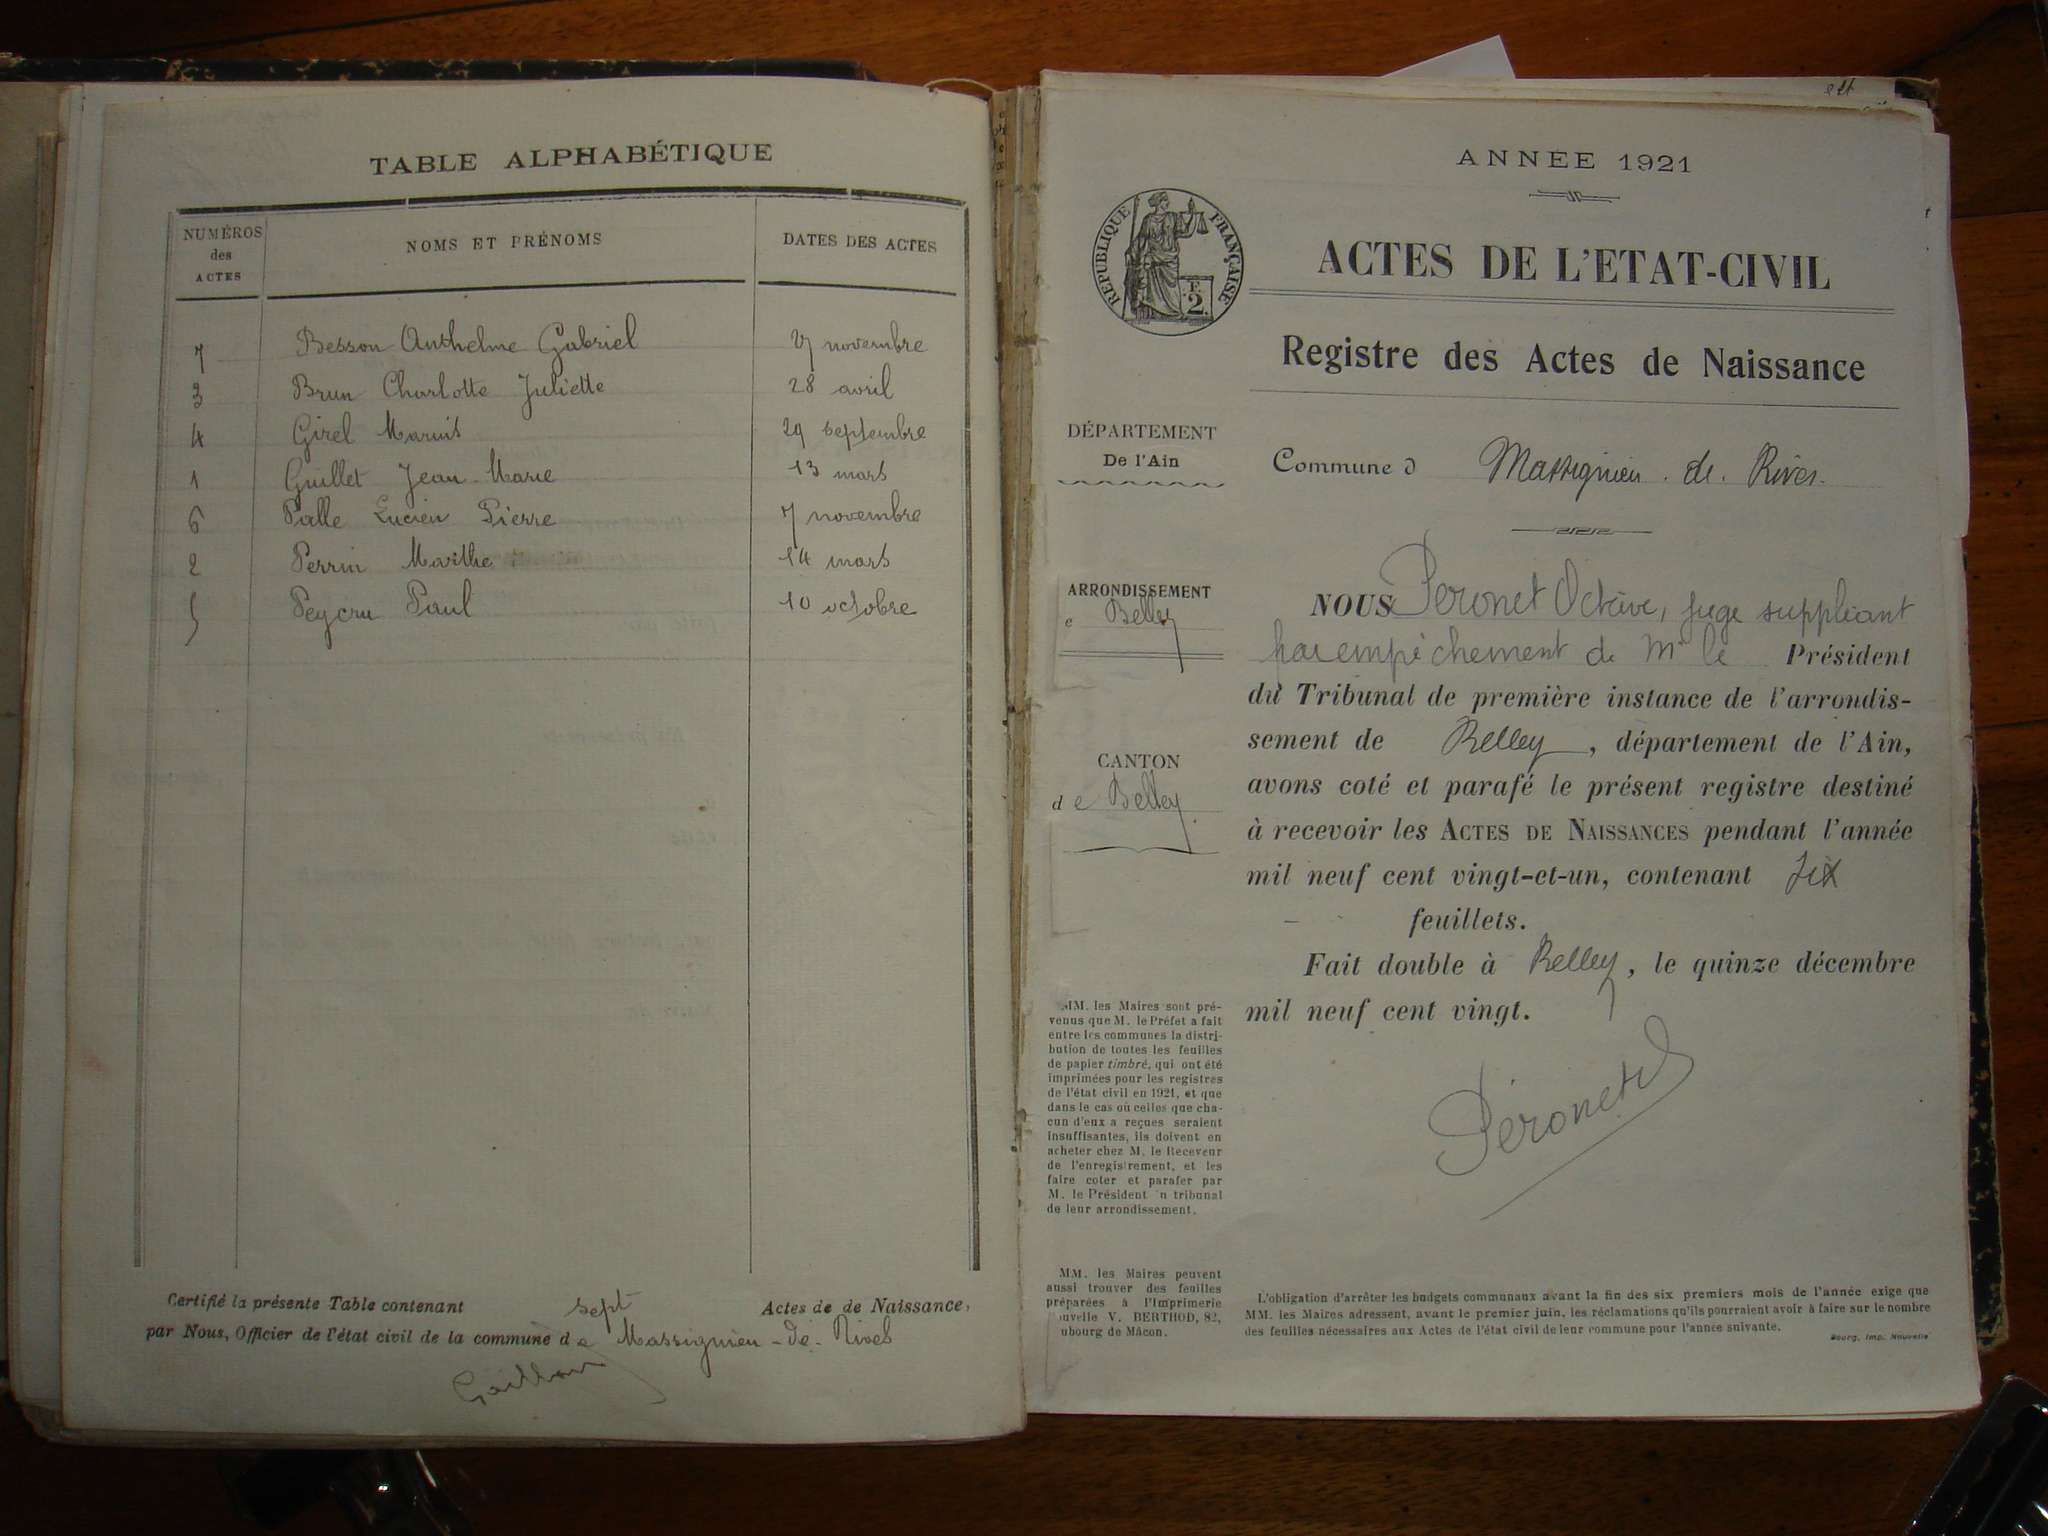 TABLE ALPHABÉTIQUE
NUMÉROS des ACTES
NOMS ET PRÉNOMS
DATES DES ACTES
7 Besson Anthelme Gabriel 27 novembre
3 Brun Charlotte Juliette 28 avril
4 Girel Marius 29 septembre
1 Guillet Jean-Marie 13 mars
6 Palle Lucien Pierre 7 novembre
2 Perrin Marthe 14 mars
5 Peycru Paul 10 octobre
Certifié la présente Table contenant sept Actes de de Naissance,
par Nous, Officier de l'état civil de la commune de Massignieu-de-Rives
ANNÉE 1921
RÉPUBLIQUE FRANÇAISE
F. 2.
ACTES DE L'ETAT-CIVIL
Registre des Actes de Naissance
DÉPARTEMENT
De l'Ain
Commune d Massignieu. de. Rives.
ARRONDISSEMENT
e Belley
CANTON
de Belley
NOUS Péronet Octave, juge suppléant
par empêchement de Mr le Président
du Tribunal de première instance de l'arrondis-
sement de Belley, département de l'Ain,
avons coté et parafé le présent registre destiné
à recevoir les ACTES DE NAISSANCES pendant l'année
mil neuf cent vingt-et-un, contenant six
feuillets.
Fait double à Belley, le quinze décembre
mil neuf cent vingt.
Péronet
MM. les Maires sont pré-
venus que M. le Préfet a fait
entre les communes la distri-
bution de toutes les feuilles
de papier timbré, qui ont été
imprimées pour les registres
de l'état civil en 1921, et que
dans le cas où celles que cha-
cun d'eux a reçues seraient
insuffisantes, ils doivent en
acheter chez M. le Receveur
de l'enregistrement, et les
faire coter et parafer par
M. le Président n tribunal
de leur arrondissement.
MM. les Maires peuvent
aussi trouver des feuilles
préparées à l'Imprimerie
ouvelle V. BERTHOD, 82,
ubourg de Mâcon.
L'obligation d'arrêter les budgets communaux avant la fin des six premiers mois de l'année exige que
MM. les Maires adressent, avant le premier juin, les réclamations qu'ils pourraient avoir à faire sur le nombre
des feuilles nécessaires aux Actes de l'état civil de leur commune pour l'année suivante.
Bourg, Imp. Nouvelle